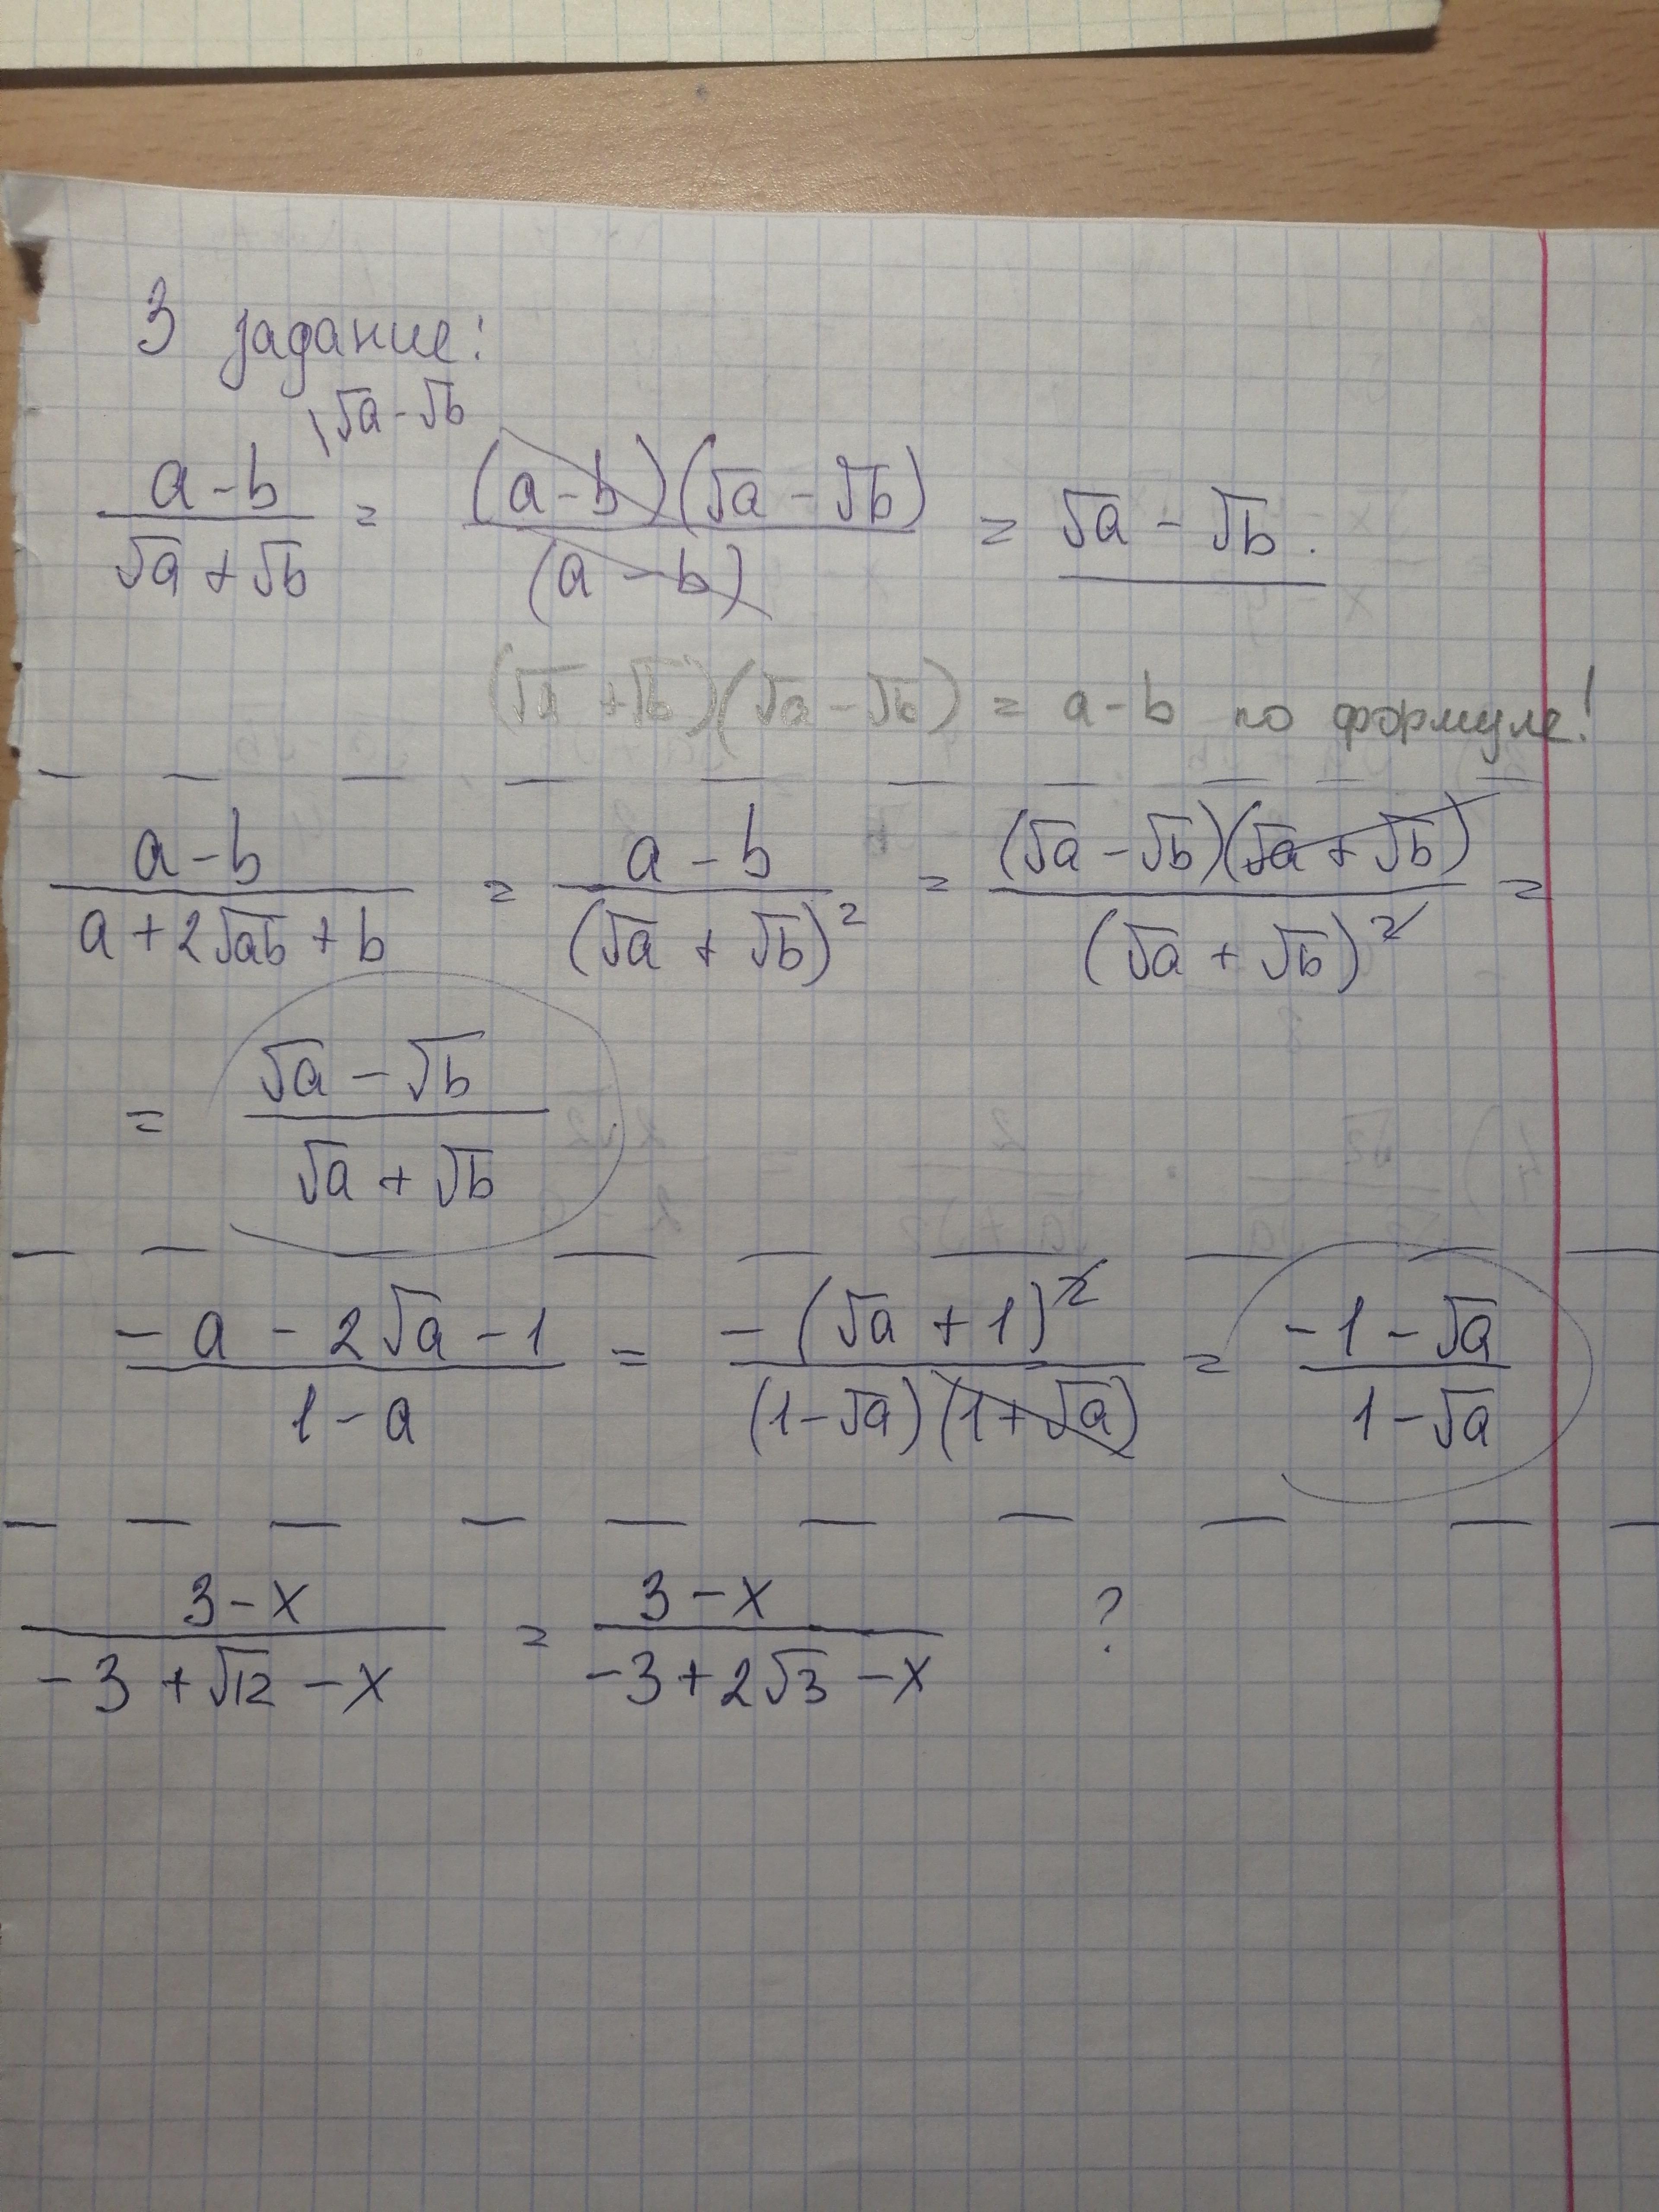 3 задание:
\√a - √b
(a - b)/(√a + √b) = ((a - b)(√a - √b))/((a - b)) = √a - √b.
(√a + √b)(√a - √b) = a - b по формуле!
(a - b)/(a + 2√ab + b) = (a - b)/((√a + √b)²) = ((√a - √b)(√a + √b))/((√a + √b)²) =
= (√a - √b)/(√a + √b)
(- a - 2√a - 1)/(1 - a) = (- (√a + 1)²)/((1 - √a)(1 + √a)) = (-1 - √a)/(1 - √a)
(3 - x)/(- 3 + √12 - x) = (3 - x)/(- 3 + 2√3 - x) ?